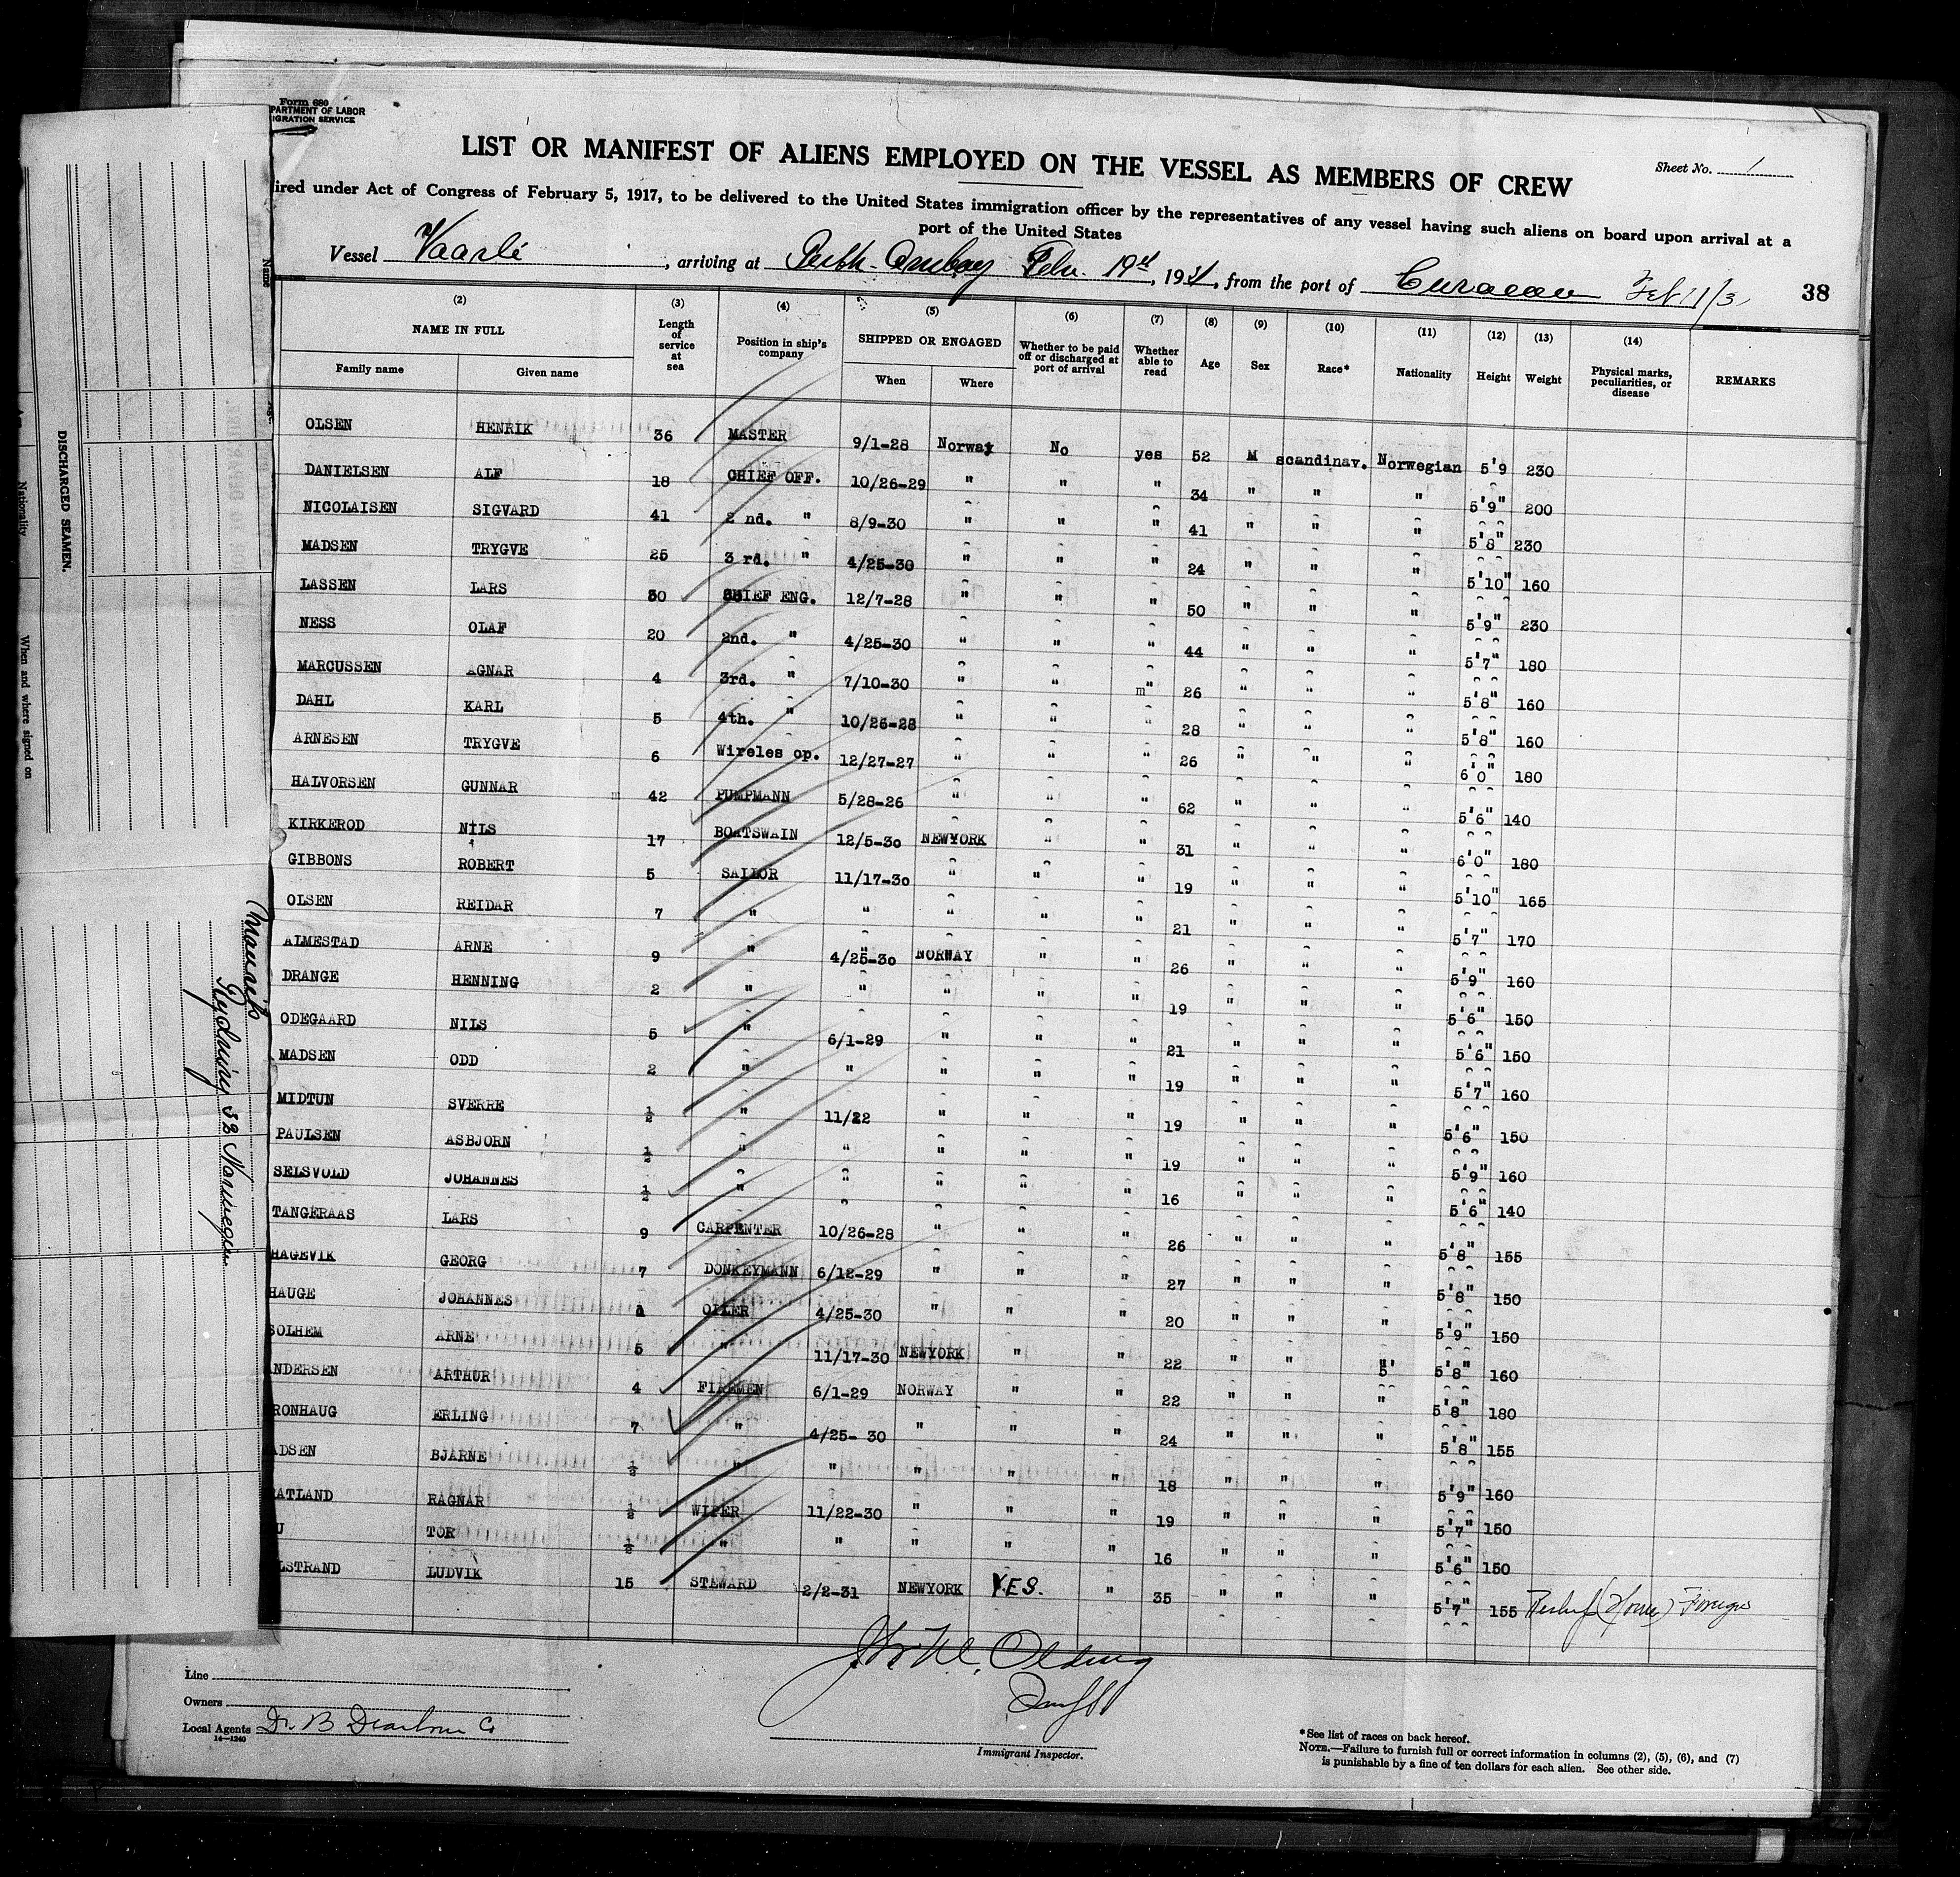 Form 680
PARTMENT OF LABOR
IGRATION SERVICE
LIST OR MANIFEST OF ALIENS EMPLOYED ON THE VESSEL AS MEMBERS OF CREW
Sheet No. 1
ired under Act of Congress of February 5, 1917, to be delivered to the United States immigration officer by the representatives of any vessel having such aliens on board upon arrival at a
port of the United States
Vessel Vaarli, arriving at Perth-Amboy Febr. 19, 1931, from the port of Curacao Feb 11/31
38
(2) (3) (4) (5) (6) (7) (8) (9) (10) (11) (12) (13) (14)
NAME IN FULL Length of service at sea Position in ship's company SHIPPED OR ENGAGED Whether to be paid off or discharged at port of arrival Whether able to read Age Sex Race* Nationality Height Weight Physical marks, peculiarities, or disease REMARKS
Family name Given name When Where
OLSEN HENRIK 36 MASTER 9/1-28 Norway No yes 52 M scandinav. Norwegian 5'9 230
DANIELSEN ALF 18 CHIEF OFF. 10/26-29 " " " 34 " " " 5'9" 200
NICOLAISEN SIGVARD 41 2 nd. " 8/9-30 " " " 41 " " " 5'8" 230
MADSEN TRYGVE 25 3 rd. " 4/25-30 " " " 24 " " " 5'10" 160
LASSEN LARS 30 CHIEF ENG. 12/7-28 " " " 50 " " " 5'9" 230
NESS OLAF 20 2nd. " 4/25-30 " " " 44 " " " 5'7" 180
MARCUSSEN AGNAR 4 3rd. " 7/10-30 " " m" 26 " " " 5'8" 160
DAHL KARL 5 4th. " 10/26-28 " " " 28 " " " 5'8" 160
ARNESEN TRYGVE 6 Wireles op. 12/27-27 " " " 26 " " " 6'0" 180
HALVORSEN GUNNAR 42 PUMPMANN 5/28-26 " " " 62 " " " 5'6" 140
KIRKEROD NILS 17 BOATSWAIN 12/5-30 NEWYORK " " 31 " " " 6'0" 180
GIBBONS ROBERT 5 SAILOR 11/17-30 " " " 19 " " " 5'10" 165
OLSEN REIDAR 7 " " " " " 21 " " " 5'7" 170
ALMESTAD ARNE 9 " 4/25-30 NORWAY " " 26 " " " 5'9" 160
DRANGE HENNING 2 " " " " " 19 " " " 5'6" 150
ODEGAARD NILS 5 " 6/1-29 " " " 21 " " " 5'6" 150
MADSEN ODD 2 " " " " " 19 " " " 5'7" 160
MIDTUN SVERRE ½ " 11/22 " " " 19 " " " 5'6" 150
PAULSEN ASBJORN ½ " " " " " 19 " " " 5'9" 160
SELSVOLD JOHANNES ½ " " " " " 16 " " " 5'6" 140
TANGERAAS LARS 9 CARPENTER 10/26-28 " " " 26 " " " 5'8" 155
HAGEVIK GEORG 7 DONKEYMANN 6/12-29 " " " 27 " " " 5'8" 150
HAUGE JOHANNES OILER 4/25-30 " " " 20 " " " 5'9" 150
SOLHEM ARNE 5 " 11/17-30 NEWYORK " " 22 " " " 5'8" 160
NDERSEN ARTHUR 4 FIREMEN 6/1-29 NORWAY " " 22 " " " 5'8" 180
RONHAUG ERLING 7 " 4/25- 30 " " " 24 " " " 5'8" 155
ADSEN BJARNE ½ " " " " " 18 " " " 5'9" 160
ATLAND RAGNAR ½ WIPER 11/22-30 " " " 19 " " " 5'7" 150
U TOR ½ " " " " " 16 " " " 5'6" 150
LSTRAND LUDVIK 15 STEWARD 2/2-31 NEWYORK YES. " 35 " " " 5'7" 155 Foreign
Line
Owners
Local Agents
14—1240
Immigrant Inspector.
*See list of races on back hereof.
NOTE.—Failure to furnish full or correct information in columns (2), (5), (6), and (7)
is punishable by a fine of ten dollars for each alien. See other side.
DISCHARGED SEAMEN.
Name
Nationality
When and where signed on
32 Norwegian